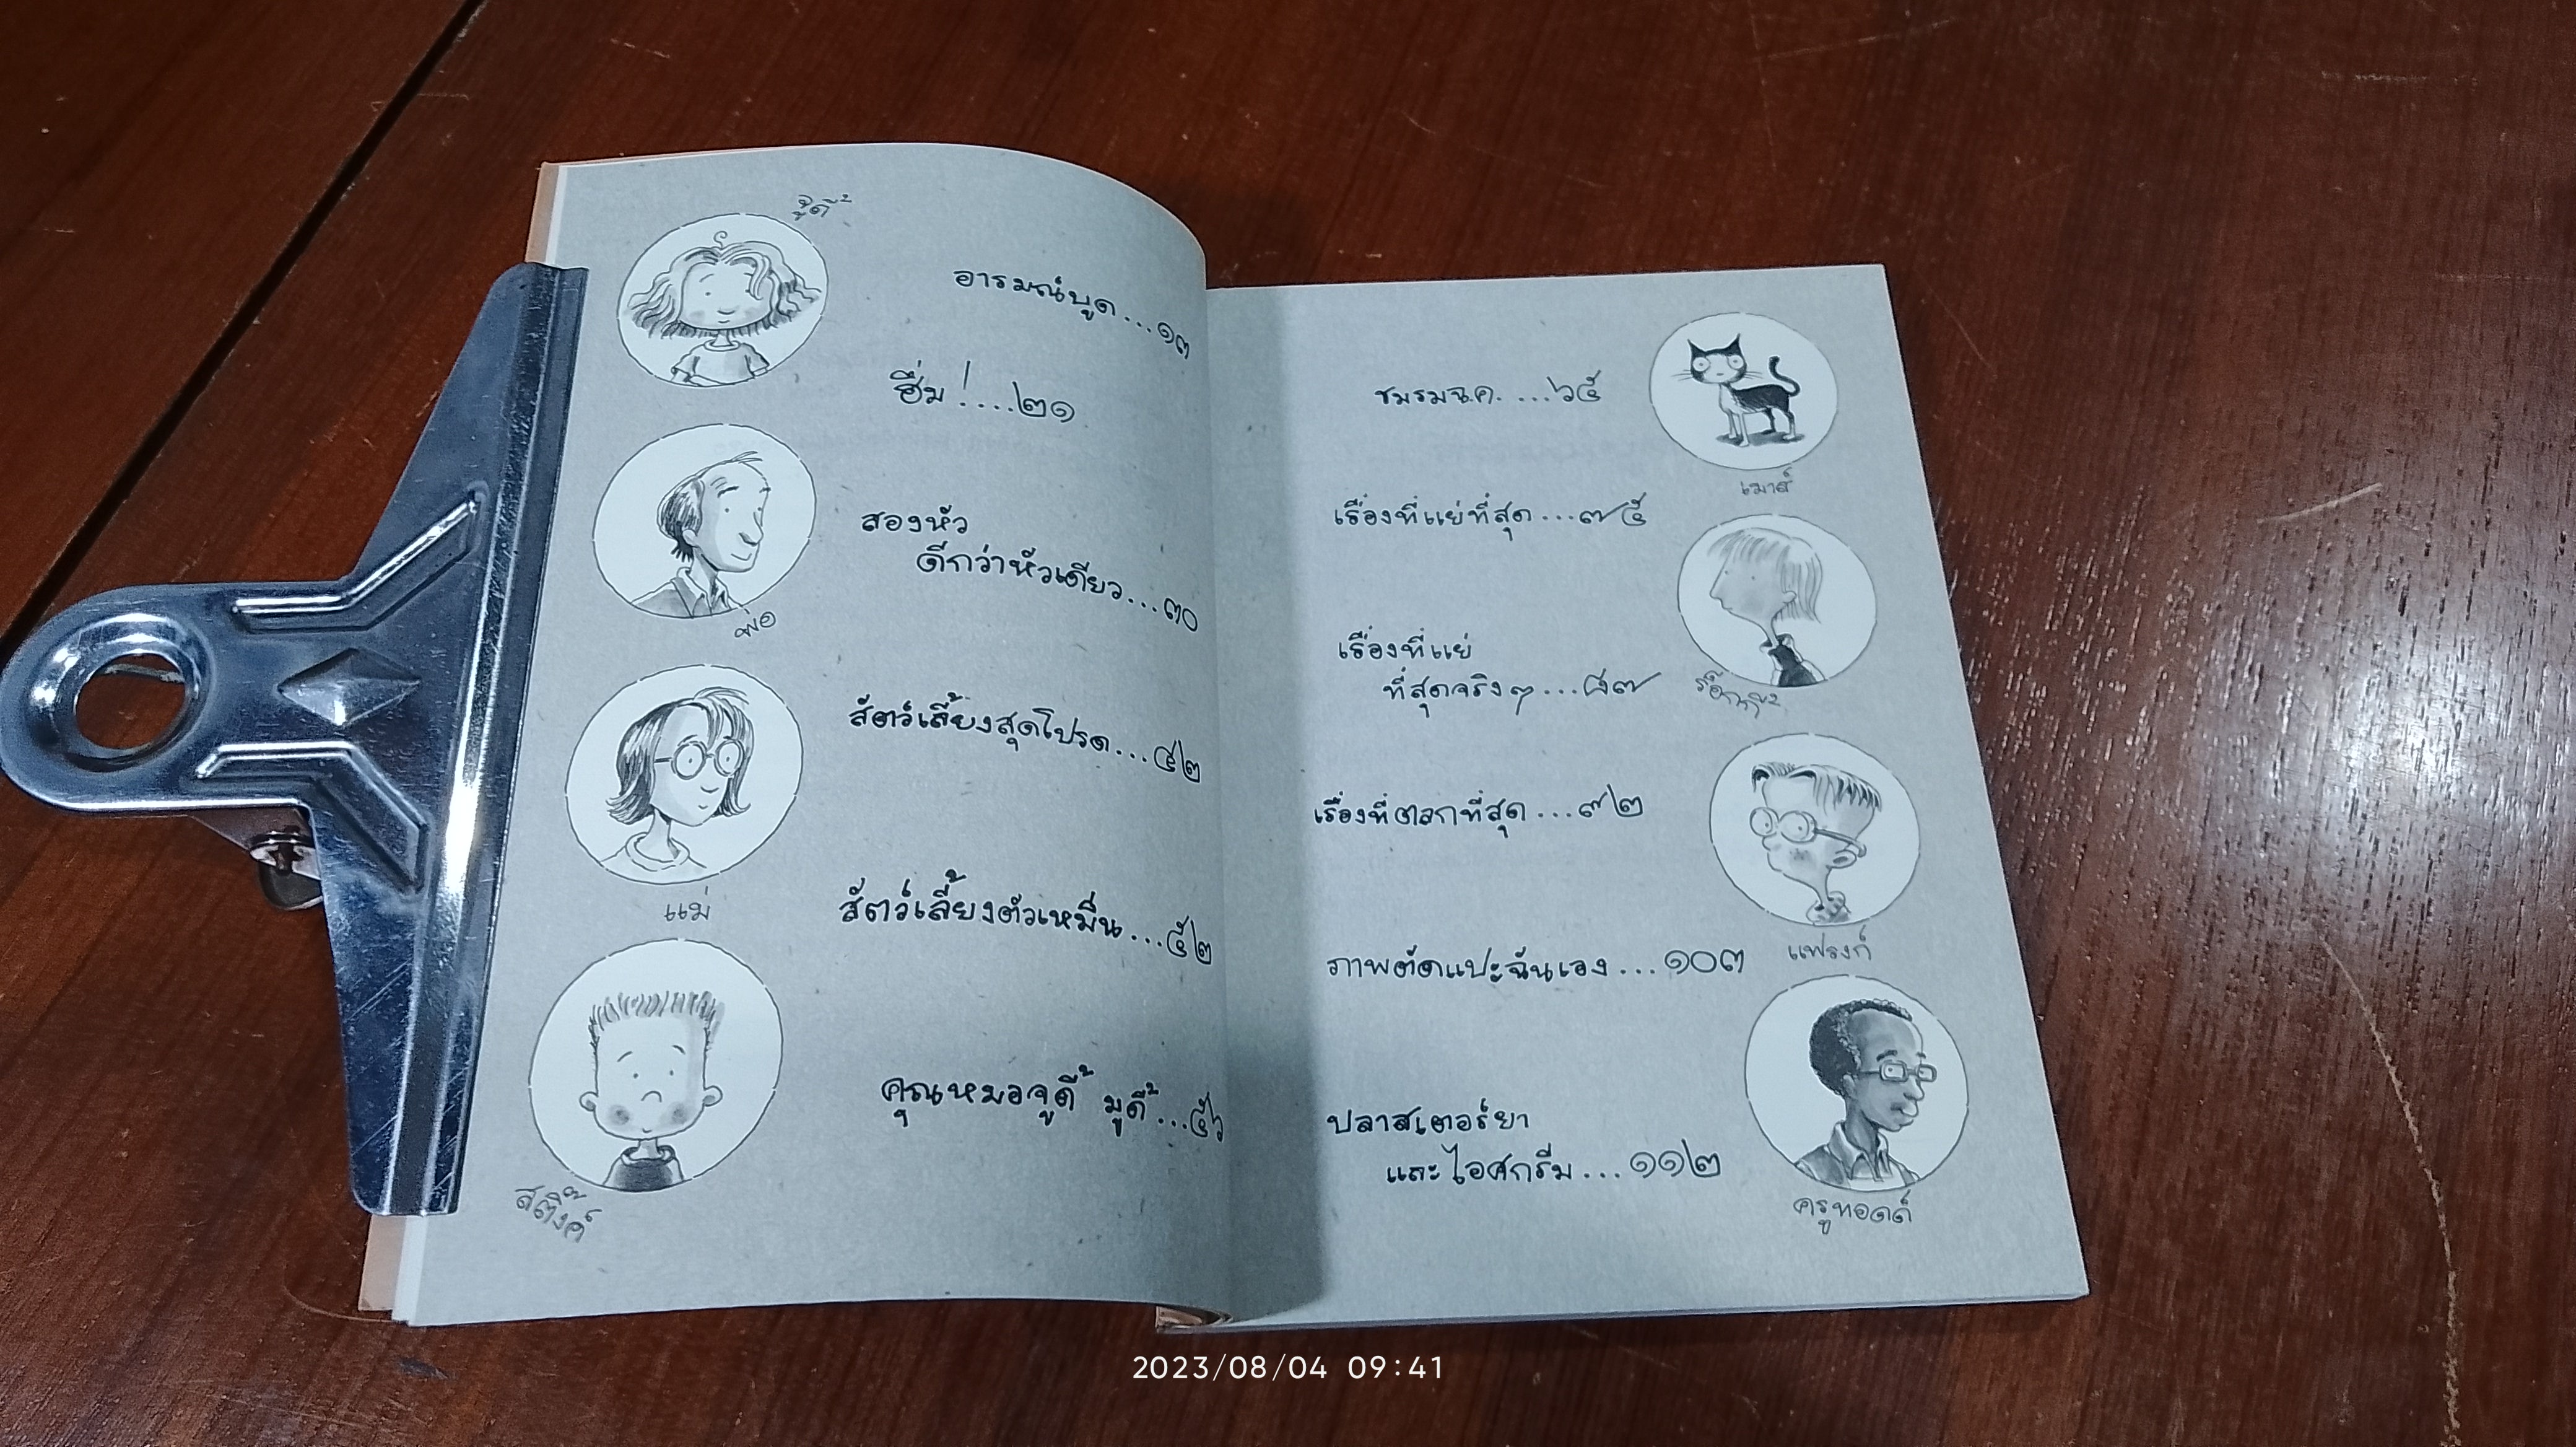 จูดี้
อารมณ์บูด...๑๓
ฮึ่ม!....๒๑
สองหัว
ดีกว่าหัวเดียว...๓๐
พ่อ
สัตว์เลี้ยงสุดโปรด...๔๒
แม่
สัตว์เลี้ยงตัวเหมื่น...๕๒
คุณหมอจูดี้ มูดี้...๕๖
สติ๊งค์
ชมรมฉ.ค. ...๖๕
เมาส์
เรื่องที่แย่ที่สุด...๗๕
เรื่องที่แย่
ที่สุดจริงๆ...๘๗
ร็อกกี้
เรื่องที่ตลกที่สุด...๙๒
แฟรงก์
ภาพตัดแปะฉันเอง...๑๐๓
ปลาสเตอร์ยา
และไอศกรีม...๑๑๒
ครูทอดด์
2023/08/04 09:41